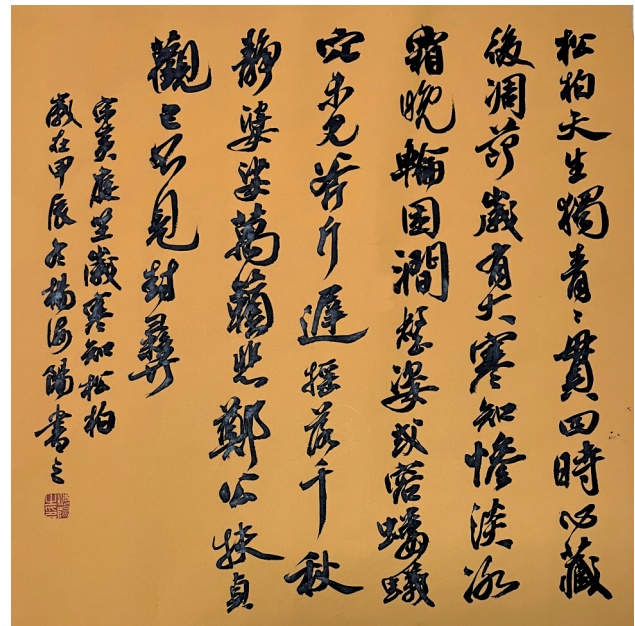 松柏天生獨青々貫四時心藏
後凋節歲有大寒知惨淡冰
霜晚輪囷澗壑姿或容螻蟻
穴未見斧斤遲摇落千秋
靜婆娑萬籟悲鄭公扶貞
觀已不見封彝
宋黄庭坚歲寒知松柏
歲在甲辰冬楊海陽書之